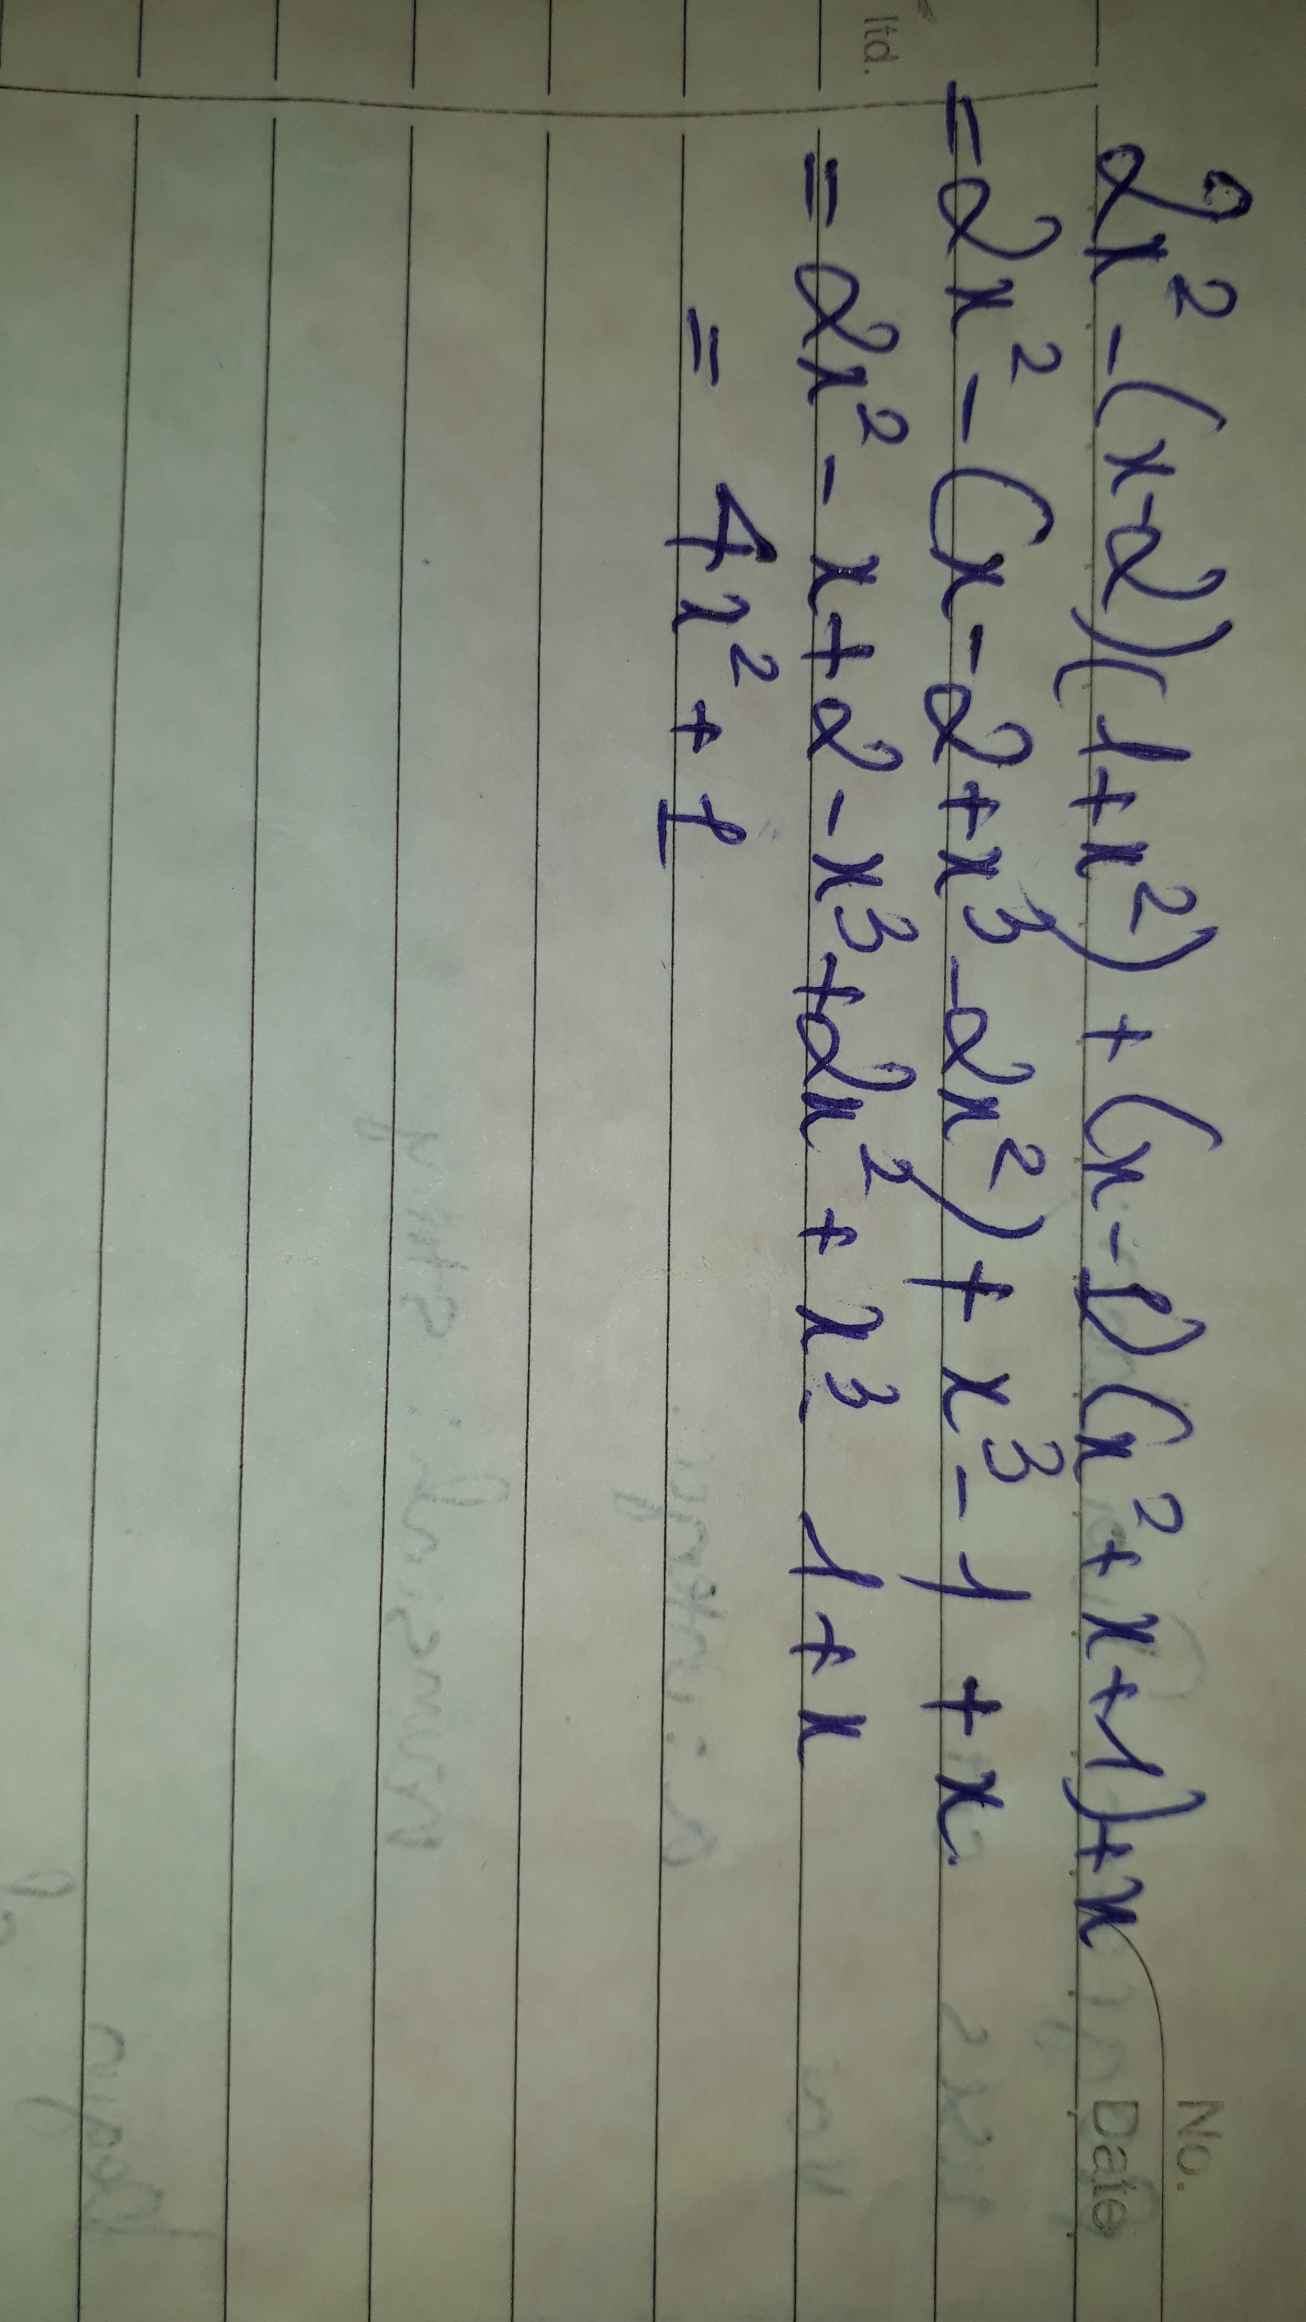 No.
Date
ltd.
2x² - (x-2)(1+x²) + (x-1)(x²+x+1)+x
= 2x² - (x-2+x³-2x²) + x³ - 1 + x
= 2x² - x + 2 - x³ + 2x² + x³ - 1 + x
= 4x² + 1